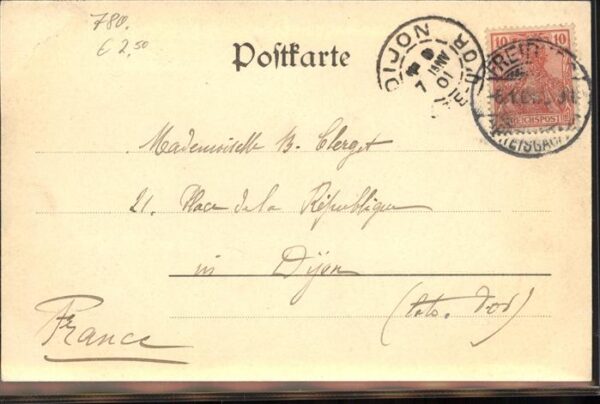 780.
€ 2,50
Postkarte
DIJON
7 JANV
01
10
REICHSPOST
Mademoiselle B. Clerget
21. Place de la République
in Dijon
(Côte. d'or)
France